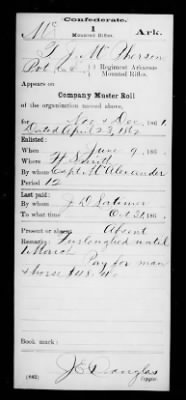 Confederate.
Mc 1 Ark.
Mounted Rifles.
T J McPherson
Pvt Co. 1 Regiment Arkansas
Mounted Rifles.
Appears on
Company Muster Roll
of the organization named above,
for Nov & Dec, 1861.
Dated April 23, 1862
Enlisted:
When June 9, 186
Where Ft Smith
By whom Capt Mc Alexander
Period 12
Last paid:
By whom J D Latimer
To what time Oct 31, 186
Present or absent Absent
Remarks: Furloughed until
1 March Pay for man
& horse
Book mark:
J E Douglas
(642) Copyist.